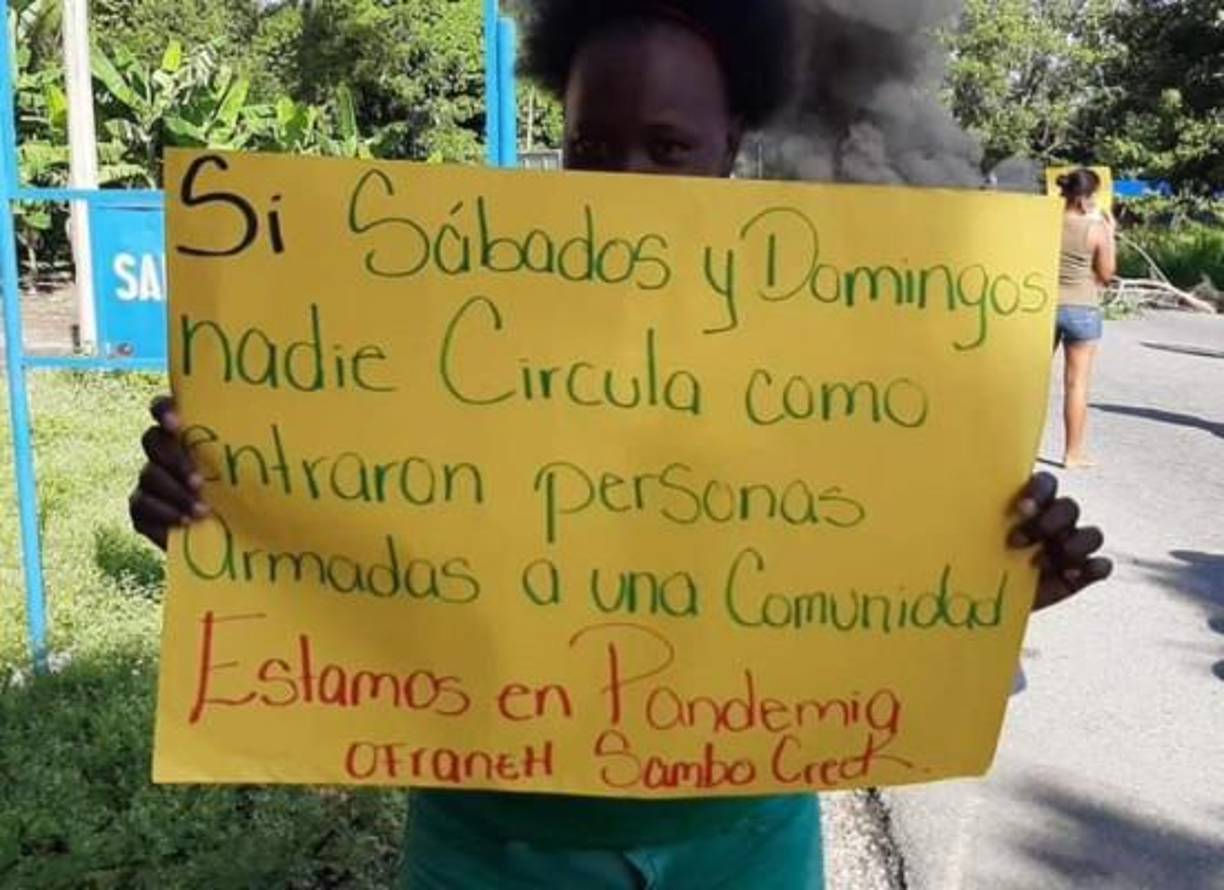 Si Sábados y Domingos
nadie Circula como
entraron personas
armadas a una Comunidad
Estamos en Pandemia
OFraneH Sambo Creek.
SA